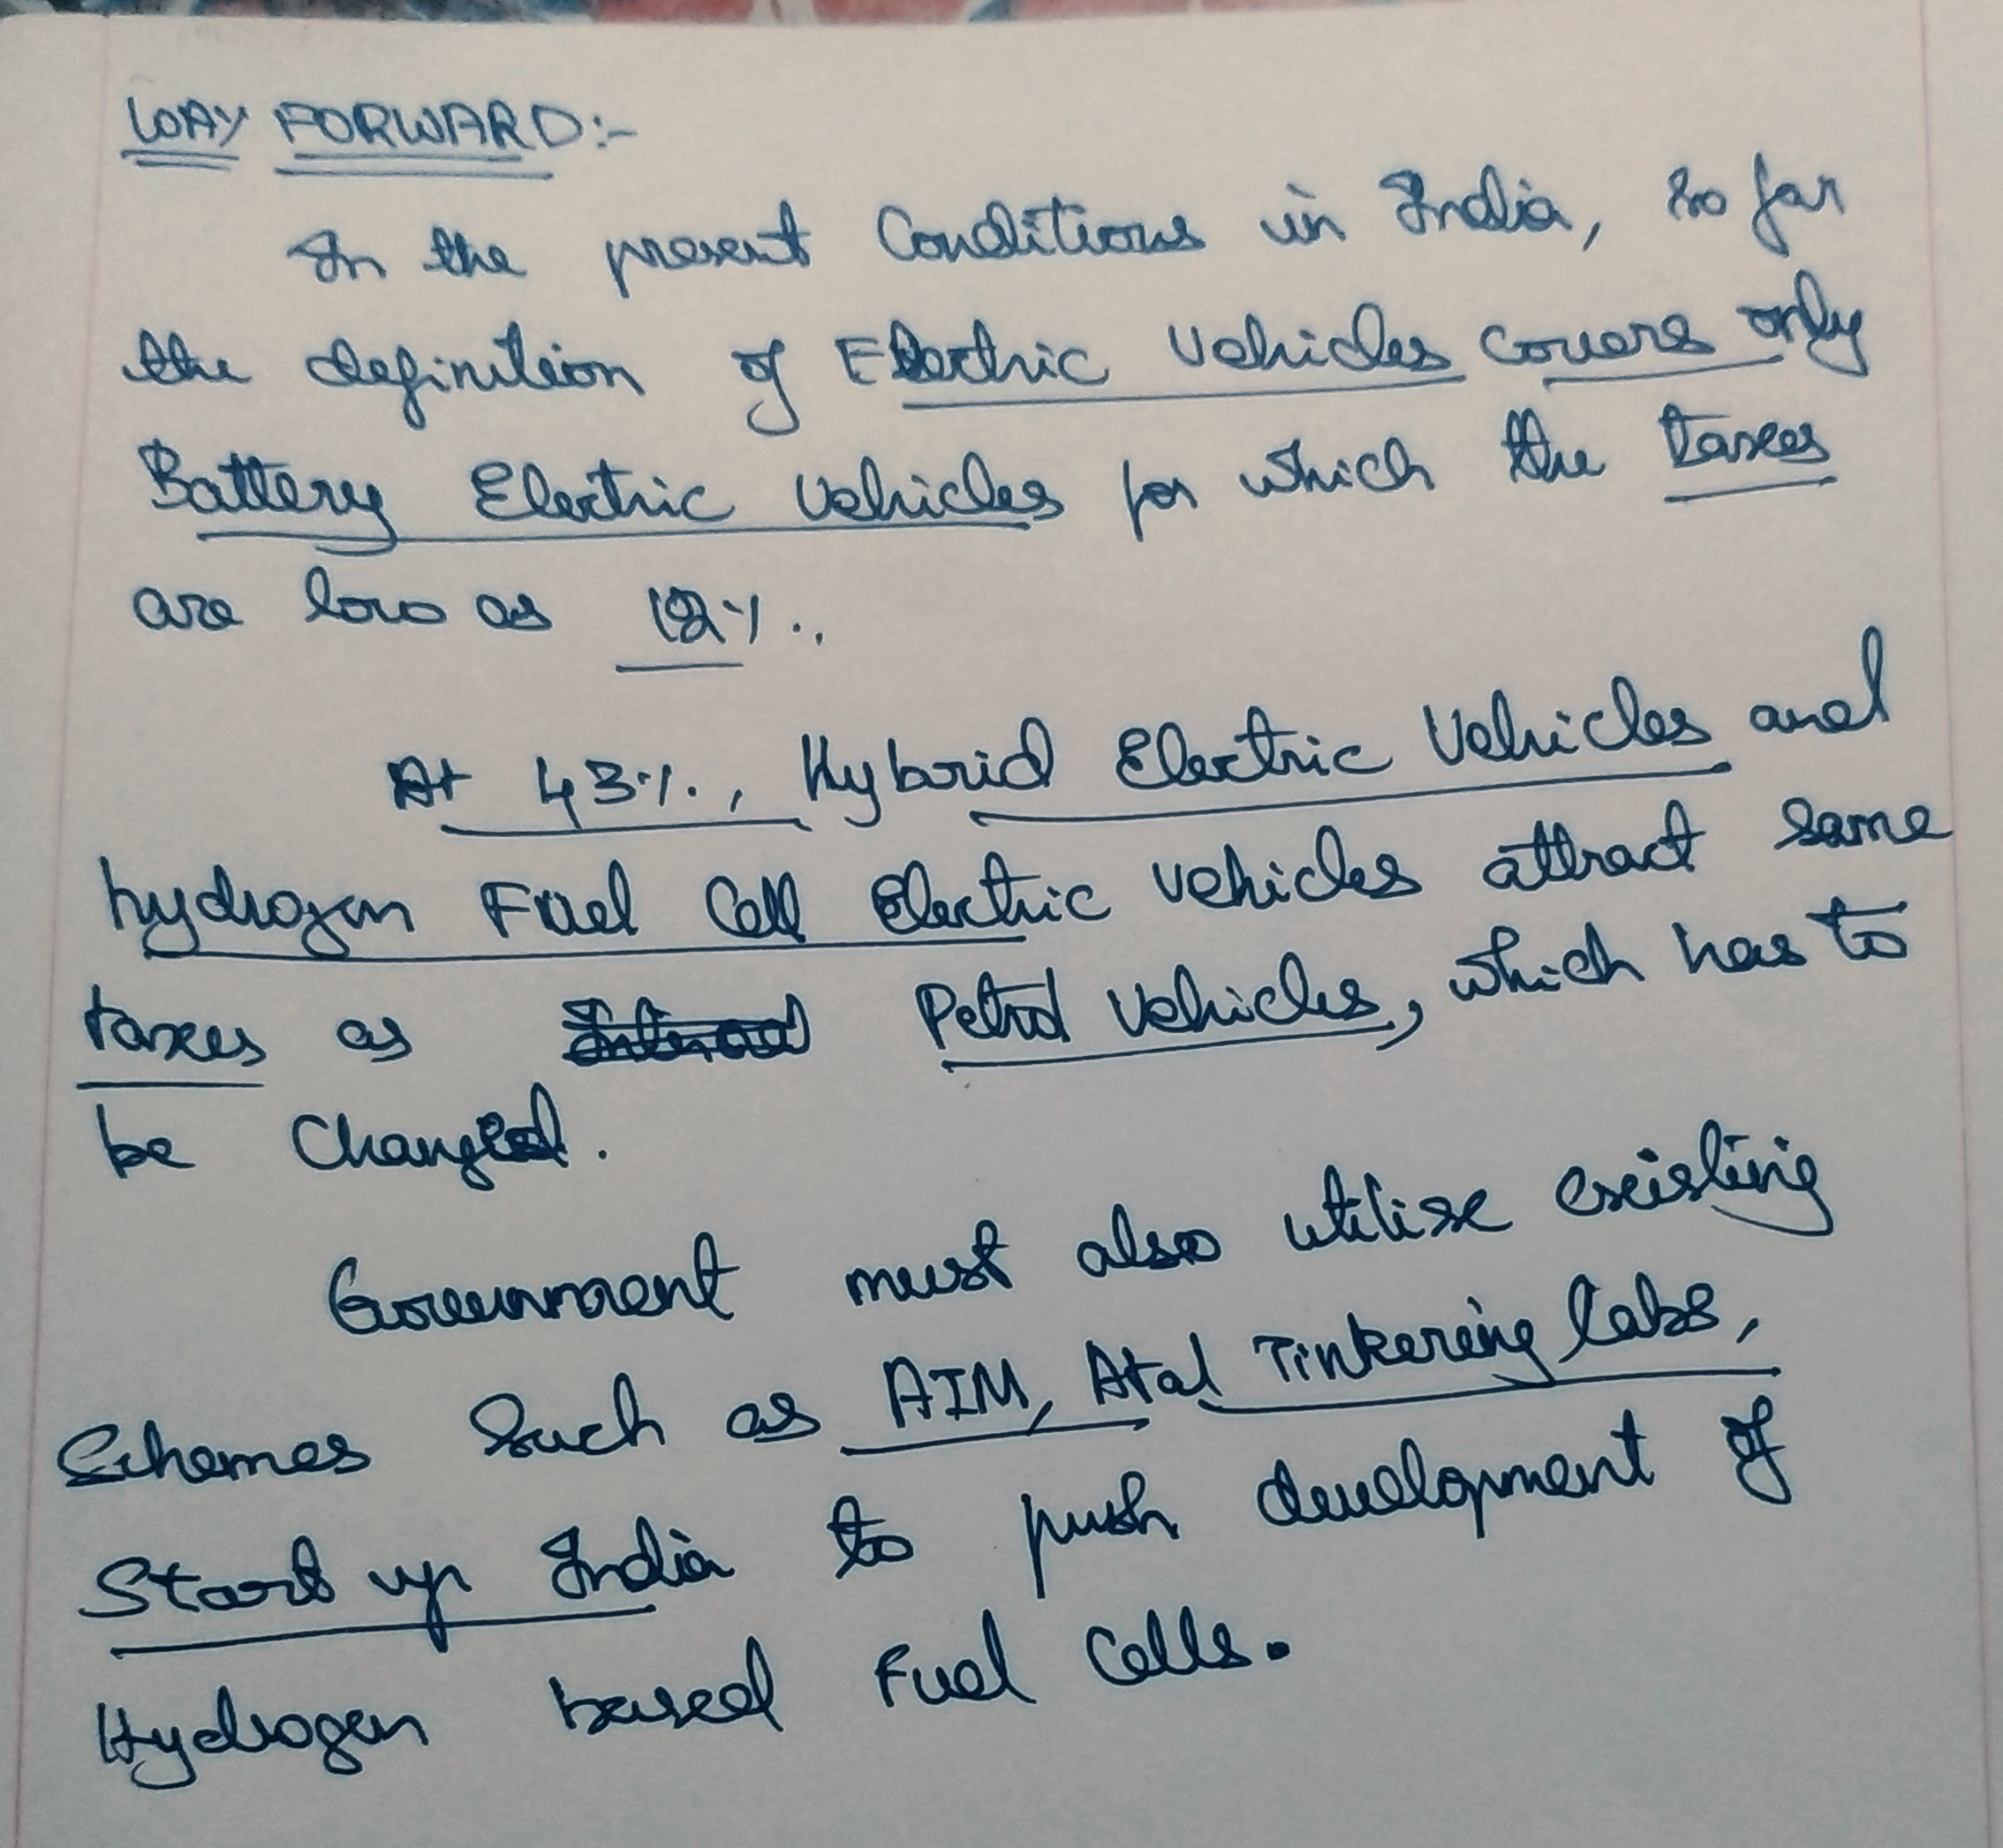 WAY FORWARD:-
In the present Conditions in India, so far
the definition of Electric Vehicles covers only
Battery Electric Vehicles for which the taxes
are low as 12%.
At 43%, Hybrid Electric Vehicles and
hydrogen Fuel Cell Electric vehicles attract same
taxes as Petrol Vehicles, which has to
be Changed.
Government must also utilise existing
Schemes Such as AIM, Atal Tinkering labs,
Start up India to push development of
Hydrogen based Fuel Cells.